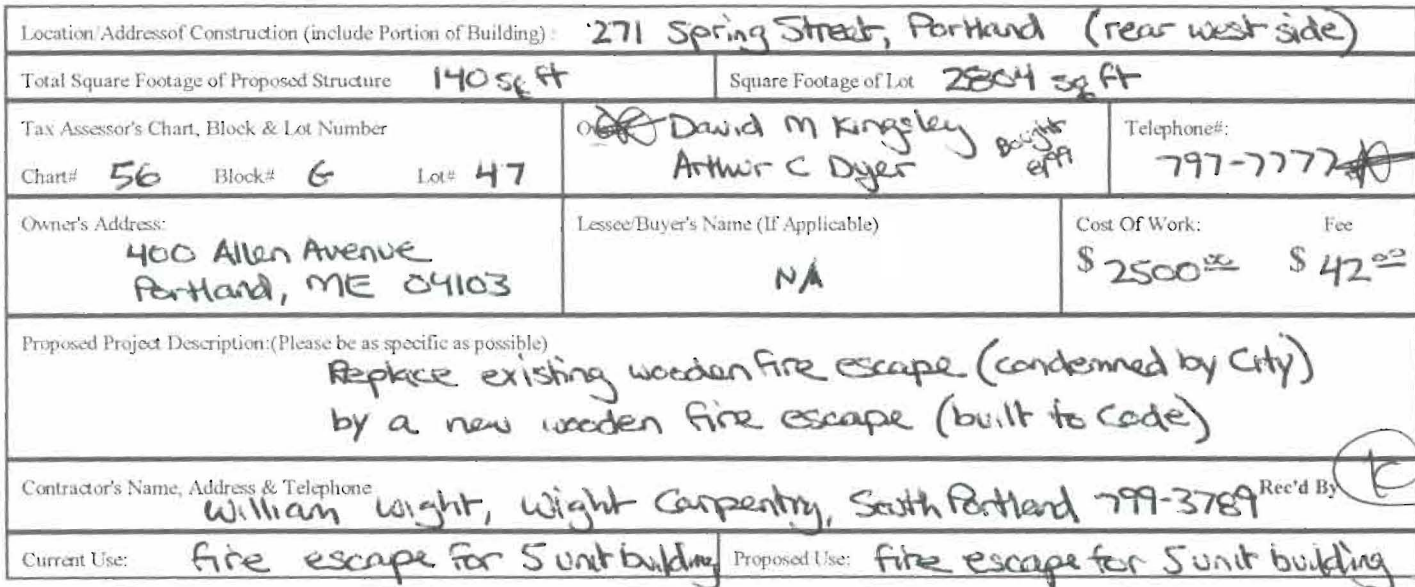 Location/Addressof Construction (include Portion of Building) : 271 Spring Street, Portland (rear west side)
Total Square Footage of Proposed Structure 140 sq ft Square Footage of Lot 2804 sq ft
Tax Assessor's Chart, Block & Lot Number
Chart# 56 Block# G Lot# 47
David M Kingsley
Arthur C Dyer
Bought
Telephone#:
797-7777
Owner's Address:
400 Allen Avenue
Portland, ME 04103
Lessee/Buyer's Name (If Applicable)
N/A
Cost Of Work: Fee
$ 2500.00 $ 42.00
Proposed Project Description:(Please be as specific as possible)
Replace existing wooden fire escape (condemned by City)
by a new wooden fire escape (built to Code)
Contractor's Name, Address & Telephone Rec'd By
William Wight, Wight Carpentry, South Portland 799-3789
Current Use: fire escape for 5 unit building Proposed Use: fire escape for 5 unit building